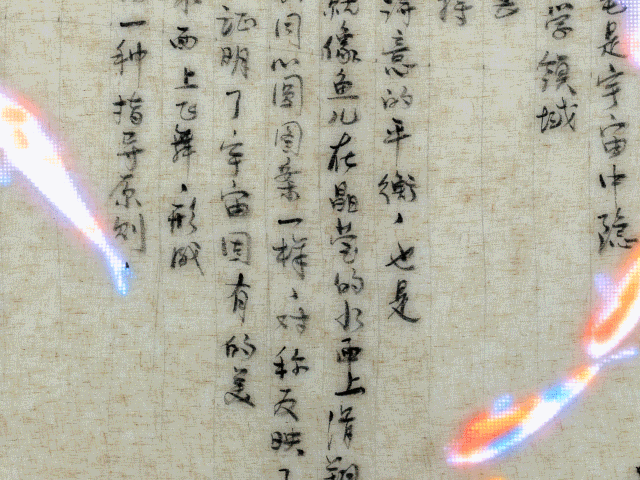 也是宇宙中隐
学领域
持
得意的平衡，也是
就像鱼儿在晶莹的水面上滑翔
同心圆图案一样，对称反映了
证明了宇宙固有的美
面上飞舞，形成
一种指导原则。